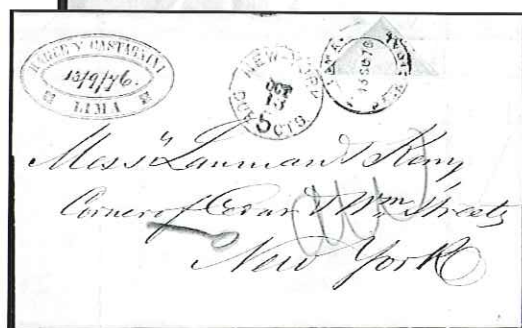 BARCO Y CASTAGNINI
13/9/76.
LIMA
NEW-YORK
OCT
13
DUE 5 CTS.
LIMA
13 SE 76
Mess" Lauman & Kemp
Corner of Cedar & Wm Streets
New York